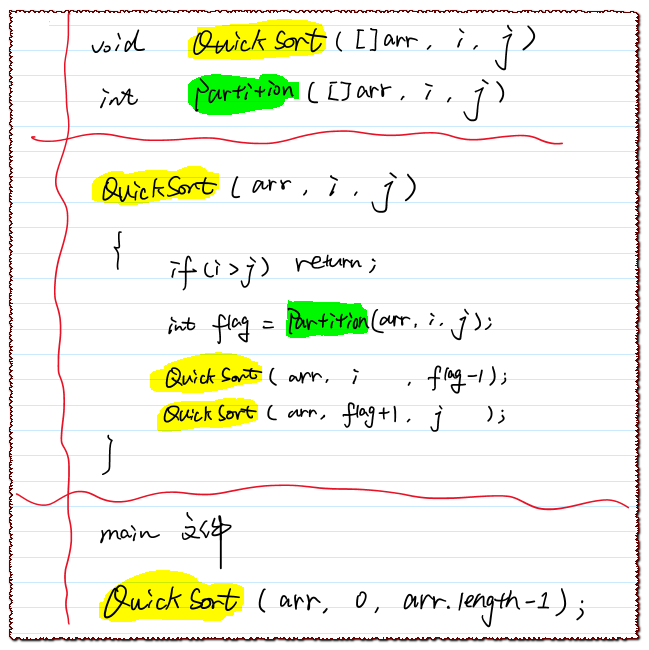 void QuickSort ( []arr, i, j )
int Partition ( []arr, i, j )
QuickSort ( arr, i, j )
{
if(i>j) return;
int flag = Partition(arr, i, j);
QuickSort ( arr, i , flag-1);
QuickSort ( arr, flag+1, j );
}
main 文件
QuickSort ( arr, 0, arr.length-1 );